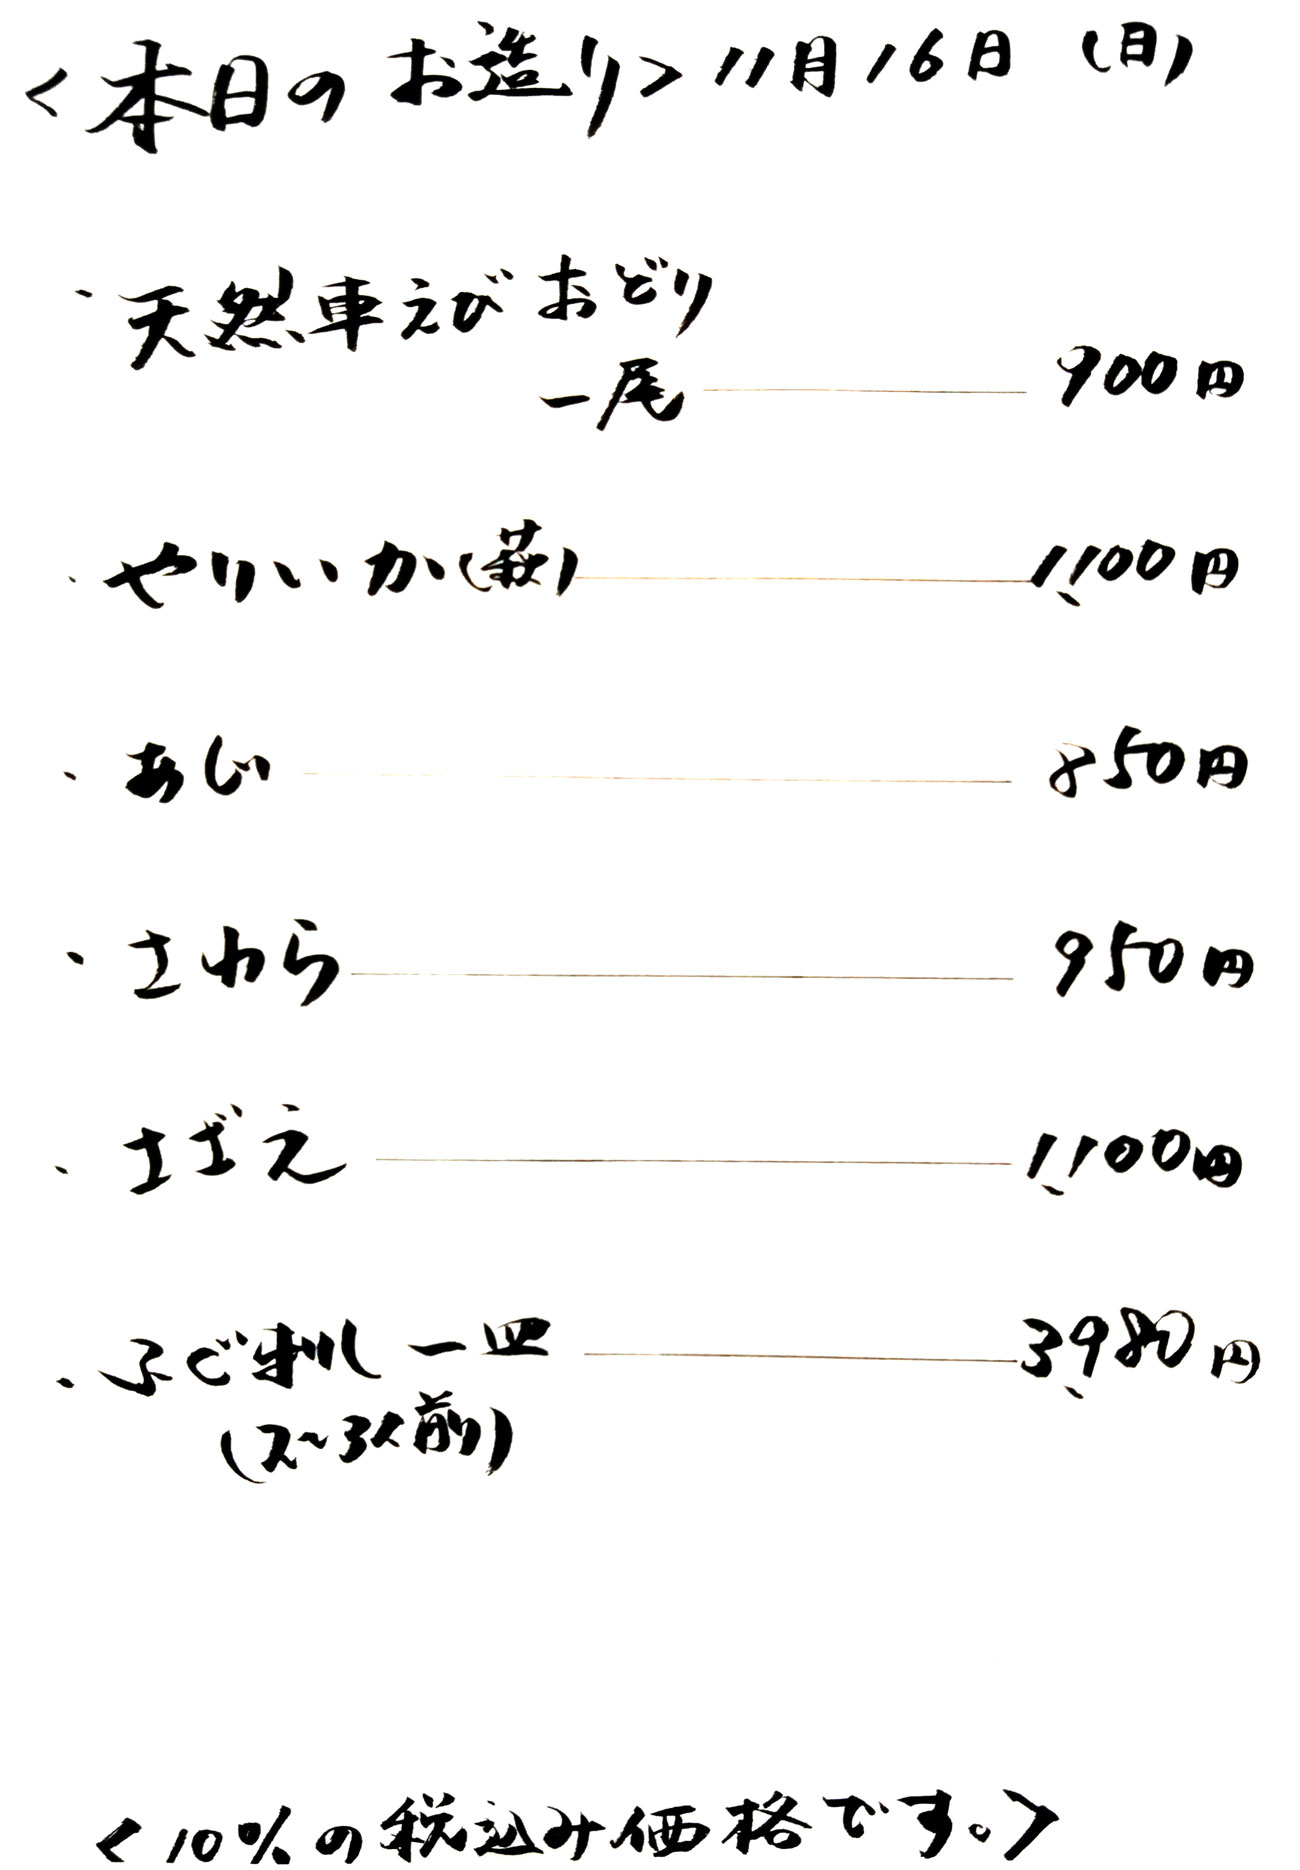 <本日のお造り> 11月16日 (日)
・天然車えび おどり
一尾 900円
・やりいか(萩) 1,100円
・あじ 850円
・さわら 950円
・さざえ 1,100円
・ふぐ刺し 一皿 3,980円
(2~3人前)
<10%の税込み価格です。>